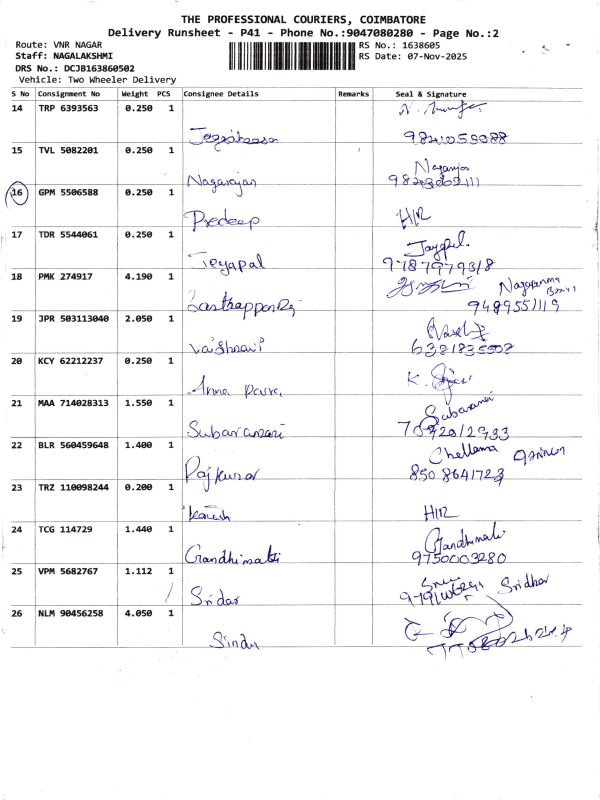 THE PROFESSIONAL COURIERS, COIMBATORE
Delivery Runsheet - P41 - Phone No.:9047080280 - Page No.:2
Route: VNR NAGAR
RS No.: 1638605
Staff: NAGALAKSHMI
RS Date: 07-Nov-2025
DRS No.: DCJB163860502
Vehicle: Two Wheeler Delivery
S No Consignment No Weight PCS Consignee Details Remarks Seal & Signature
14 TRP 6393563 0.250 1
15 TVL 5082201 0.250 1
Nagarajan
16 GPM 5506588 0.250 1
Pradeep H/R
17 TDR 5544061 0.250 1
Jeyapal Jayapal
9787979318
18 PMK 274917 4.190 1
9489551119
19 JPR 503113040 2.050 1
Vaishnavi
20 KCY 62212237 0.250 1
Anna K.
21 MAA 714028313 1.550 1
22 BLR 560459648 1.400 1
Rajkumar Chellama
8508641723
23 TRZ 110098244 0.200 1
H/R
24 TCG 114729 1.440 1
Gandhimathi Gandhimathi
9750003280
25 VPM 5682767 1.112 1
Sridar Sridhar
26 NLM 90456258 4.050 1
Sindu